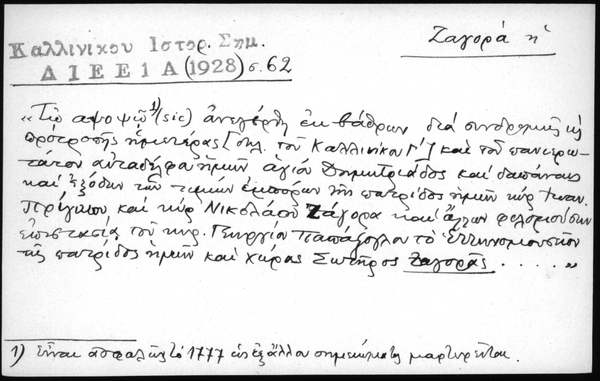 Ζαγορά ἡ
Καλλινικου Ιστορ. Σημ.
ΔΙΕΕ 1 Α (1928) σ. 62
«Τῷ αψοψῷ 1) (sic) ἀνεγέρθη ἐκ βάθρων διά συνδρομῆς κ
προτροπῆς ἡμετέρας [δηλ. τοῦ Καλλινίκου Γ'] καὶ τοῦ πανιερω-
τάτου αὐταδέλφου ἡμῶν ἁγίου Δημητριάδος καὶ δαπάναις
καὶ ἐξόδων τῶν τιμίων ἐμπόρων τῆς πατρίδος ἡμῶν κὺρ Ἰωαν.
Πρίγκου καὶ κὺρ Νικολάου Ζάγορα καὶ ἄλλων φιλομούσων
ἐπιστασίᾳ τοῦ κυρ. Γεωργίου Παπάζογλου τὸ Ἑλληνομουσεῖον
τῆς πατρίδος ἡμῶν καὶ χώρας Σωτῆρος Ζαγορᾶς . . . . . »
1) Εἶναι ἀσφαλῶς τὸ 1777 ὡς ἐξ ἄλλου σημειώματος μαρτυρεῖται.